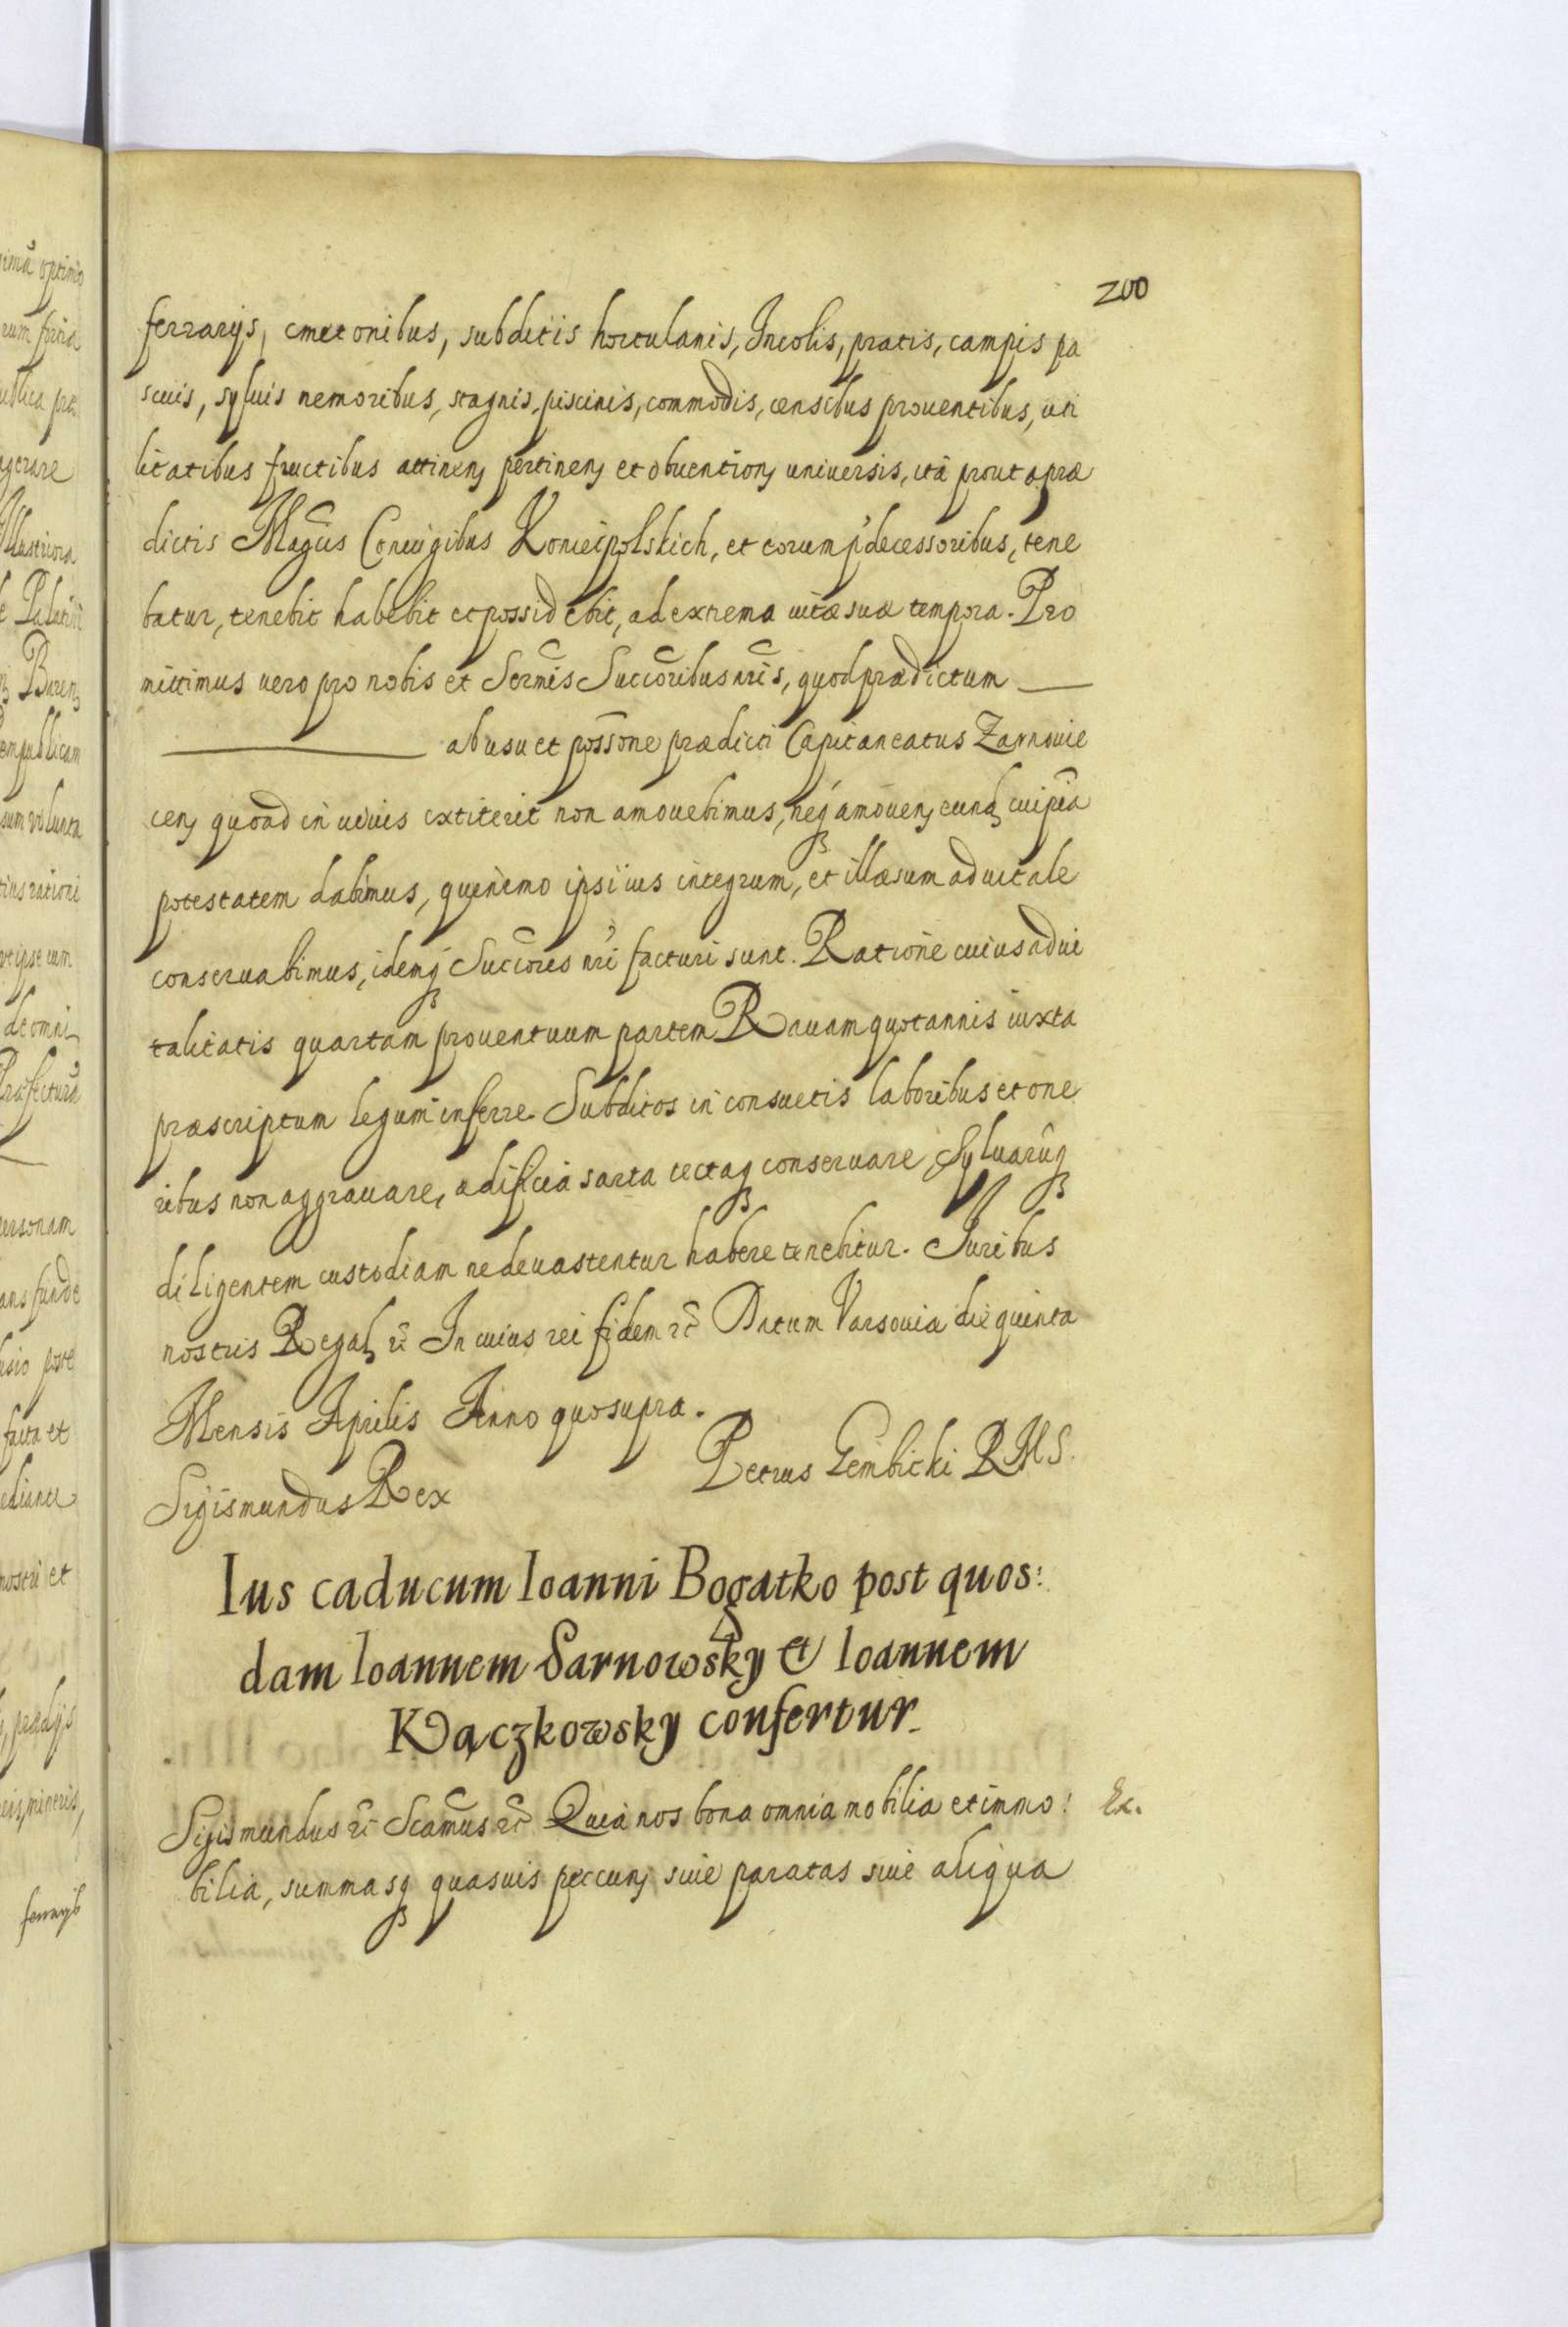 200
ferrarijs, cmetonibus, subditis hortulanis, Incolis, pratis, campis pa
scuis, syluis nemoribus, stagnis, piscinis, commodis, censibus prouentibus, uti
litatibus fructibus attinen pertinen et obuention uniuersis, ità prout a præ
dictis Magcis Coniugibus Koniecpolskich, et eorum pdecessoribus, tene
batur, tenebit habebit et possidebit, ad extrema uitæ suæ tempora. Pro
mittimus uero pro nobis et Sermis Succoribus nris, quod prædictum
ab usu et possone prædicti Capitaneatus Zarnouie
cen quoad in uiuis extiterit non amouebimus, neq amouen eund cuipia
potestatem dabimus, quinimo ipsi ius integrum, et illæsum aduitale
conseruabimus, idemq Succores nri facturi sunt. Ratione cuius adui
talitatis quartam prouentuum partem Rauam quotannis iuxta
præscriptum legum inferre. Subditos in consuetis laboribus et one
ribus non aggrauare, ædificia sarta tectaq conseruare, Syluarūq
diligentem custodiam ne deuastentur habere tenebitur. Iuribus
nostris Regal etc In cuius rei fidem etc Datum Varsouiæ die quinta
Mensis Aprilis Anno quo supra.
Sigismundus Rex
Petrus Gembicki RMS.
Ius caducum Ioanni Bogatko post quos:
dam Ioannem Sarnowsky et Ioannem
Kłączkowsky confertur.
Sigismundus etc Scamus etc Quia nos bona omnia mobilia et immo:
Ex.
bilia, summasq quasuis peccun siue paratas siue aliqua